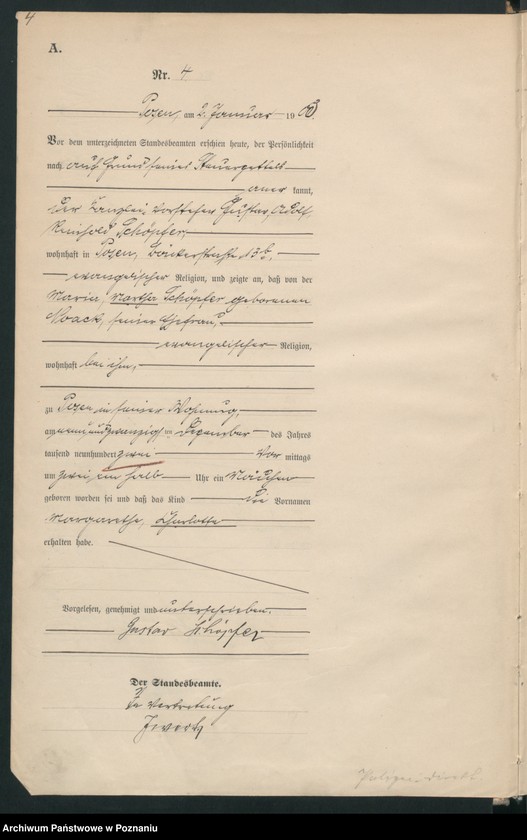 4
A.
Nr. 4
Posen, am 2. Januar 1903.
Vor dem unterzeichneten Standesbeamten erschien heute, der Persönlichkeit
nach auf Grund seines Steuerzettels
aner kannt,
der Kanzlei-Vorsteher Gustav Adolf
Reinhold Schöpfer,
wohnhaft in Posen, 13b,
evangelischer Religion, und zeigte an, daß von der
Maria, Martha Schöpfer geborenen
Noack, seiner Ehefrau,
evangelischer Religion,
wohnhaft bei ihm,
zu Posen in seiner Wohnung,
am neunundzwanzigsten Dezember des Jahres
tausend neunhundert zwei Vor mittags
um zwei ein halb Uhr ein Mädchen
geboren worden sei und daß das Kind die Vornamen
Margarethe, Charlotte
erhalten habe.
Vorgelesen, genehmigt und unterschrieben.
Gustav Schöpfer
Der Standesbeamte.
In Vertretung
Archiwum Państwowe w Poznaniu